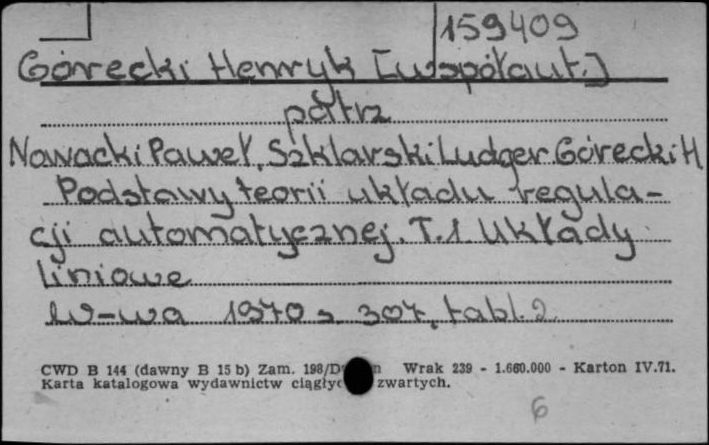 159409
Górecki Henryk [współaut.]
patrz
Nowacki Paweł, Szklarski Ludger Górecki H
Podstawy teorii układu regula-
cji automatycznej. T.1. Układy
liniowe
W-wa 1970 s 307, tabl. 2
CWD B 144 (dawny B 15 b) Zam. 198/D Wrak 239 - 1.660.000 - Karton IV.71.
Karta katalogowa wydawnictw zwartych.
6